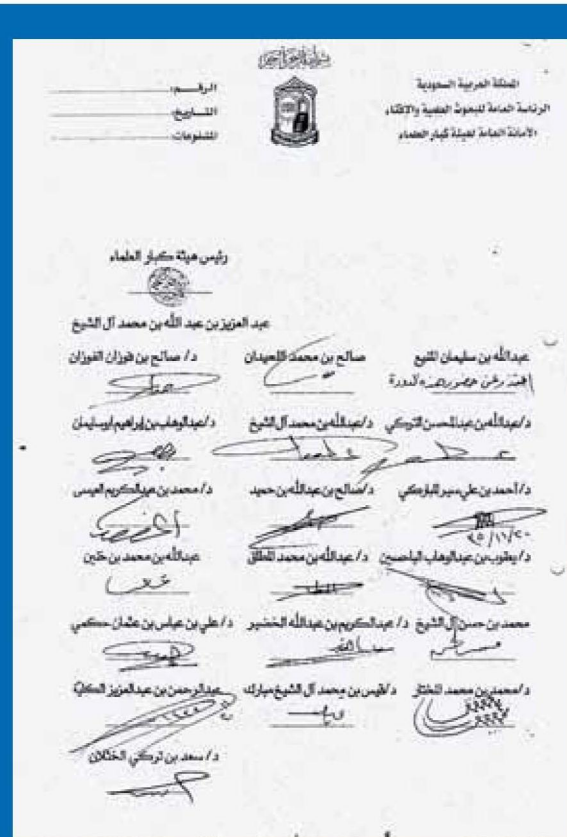 بسم الله الرحمن الرحيم
المملكة العربية السعودية
الرئاسة العامة للبحوث العلمية والإفتاء
الأمانة العامة لهيئة كبار العلماء
الرقـــم:
التـــاريخ:
المشفوعات:
رئيس هيئة كبار العلماء
عبد العزيز بن عبد الله بن محمد آل الشيخ
عبدالله بن سليمان المنيع صالح بن محمد اللحيدان د/ صالح بن فوزان الفوزان
اعتذر عن حضور هذه الدورة
د/عبدالله بن عبدالمحسن التركي د/عبدالله بن محمد آل الشيخ د/عبدالوهاب بن إبراهيم أبوسليمان
د/أحمد بن علي سير المباركي د/صالح بن عبدالله بن حميد د/ محمد بن عبدالكريم العيسى
٢٠/١١/٢٥
د/ يعقوب بن عبدالوهاب الباحسين د/ عبدالله بن محمد المطلق عبدالله بن محمد بن خنين
محمد بن حسن آل الشيخ د/ عبدالكريم بن عبدالله الخضير د/ علي بن عباس بن عثمان حكمي
د/محمد بن محمد المختار د/قيس بن محمد آل الشيخ مبارك عبدالرحمن بن عبدالعزيز الكلية
د/ سعد بن تركي الخثلان